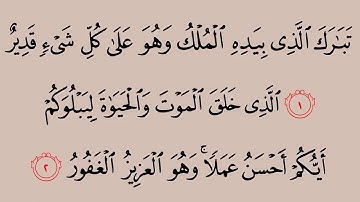 تَبَٰرَكَ ٱلَّذِى بِيَدِهِ ٱلْمُلْكُ وَهُوَ عَلَىٰ كُلِّ شَىْءٍ قَدِيرٌ
١ ٱلَّذِى خَلَقَ ٱلْمَوْتَ وَٱلْحَيَوٰةَ لِيَبْلُوَكُمْ
أَيُّكُمْ أَحْسَنُ عَمَلًا ۚ وَهُوَ ٱلْعَزِيزُ ٱلْغَفُورُ ٢